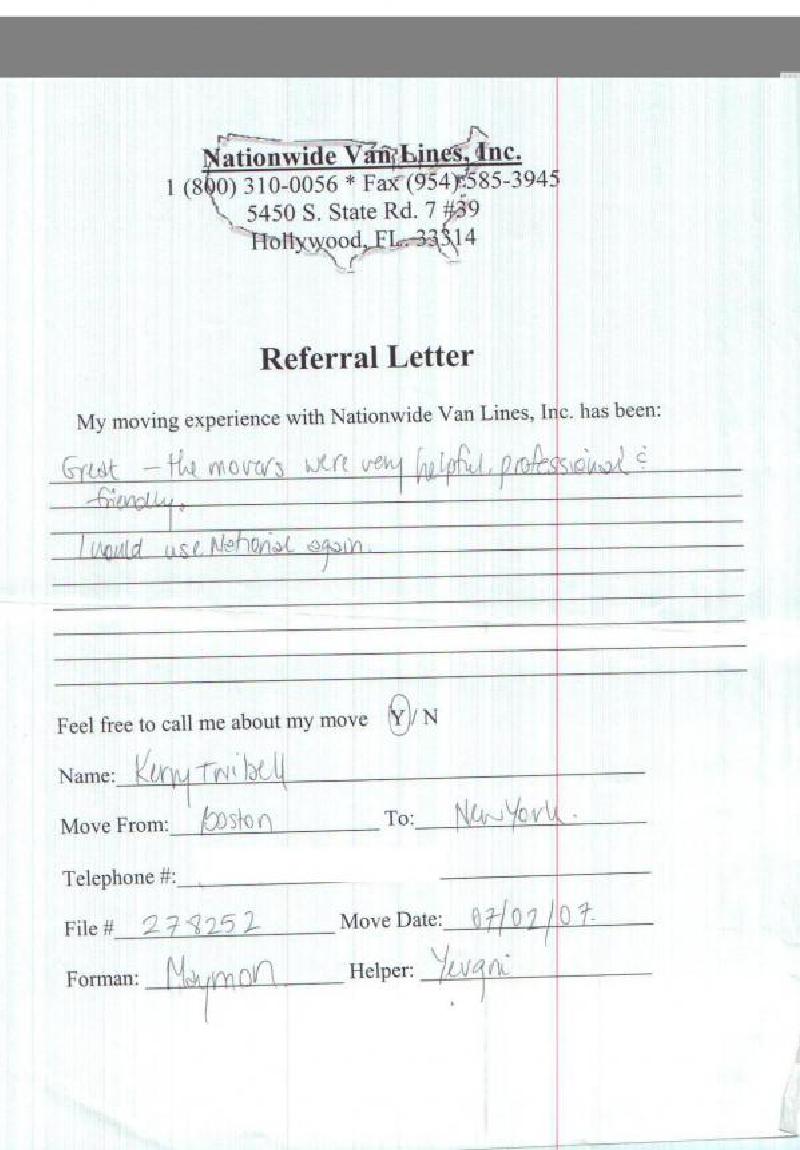 Nationwide Van Lines, Inc.
1 (800) 310-0056 * Fax (954) 585-3945
5450 S. State Rd. 7 #39
Hollywood, FL. 33314
Referral Letter
My moving experience with Nationwide Van Lines, Inc. has been:
Great – the movers were very helpful, professional &
friendly.
I would use National again.
Feel free to call me about my move Y/N
Name: Kerry Twibell
Move From: Boston To: New York.
Telephone #:
File # 278252 Move Date: 07/02/07
Forman: Maymon Helper: Yevgni